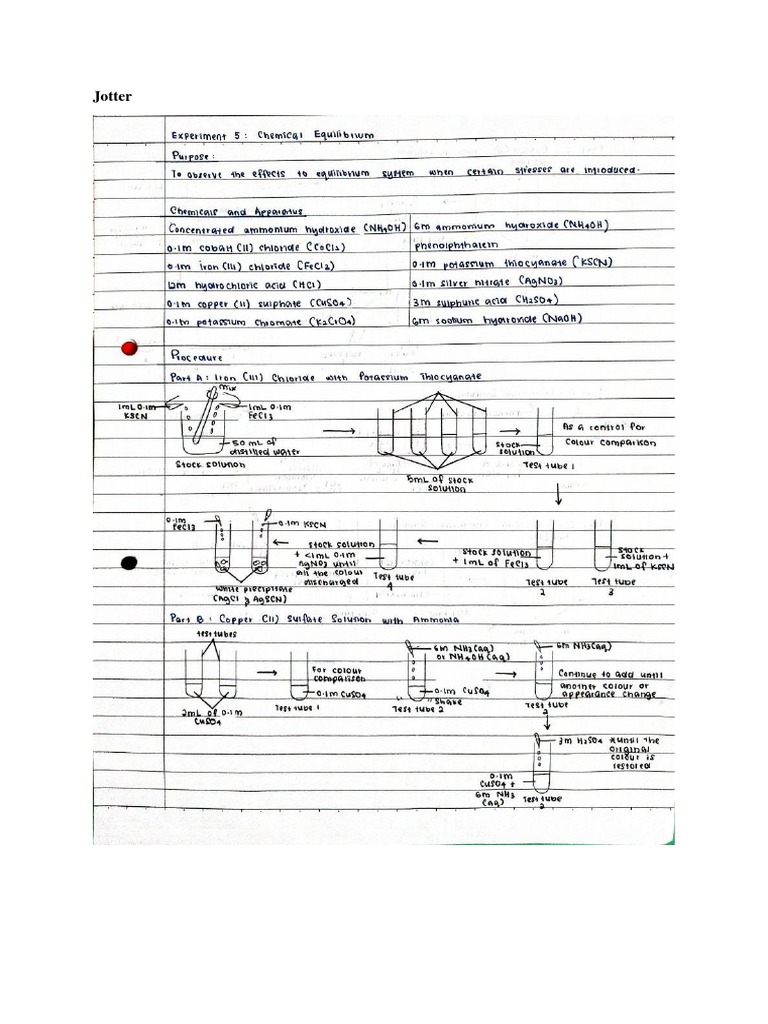 Jotter
Experiment 5 : Chemical Equilibrium
Purpose :
To observe the effects to equilibrium system when certain stresses are introduced.
Chemicals and Apparatus
Concentrated ammonium hydroxide (NH4OH) 6m ammonium hydroxide (NH4OH)
0.1m cobalt (II) chloride (CoCl2) phenolphthalein
0.1m iron (III) chloride (FeCl3) 0.1m potassium thiocyanate (KSCN)
12m hydrochloric acid (HCl) 0.1m silver nitrate (AgNO3)
0.1m copper (II) sulphate (CuSO4) 3m sulphuric acid (H2SO4)
0.1m potassium chromate (K2CrO4) 6m sodium hydroxide (NaOH)
Procedure
Part A : Iron (III) Chloride with Potassium Thiocyanate
mix
1mL 0.1m
KSCN
1mL 0.1m
FeCl3
50 mL of
distilled water
Stock solution
5mL of stock
solution
stock
solution
Test tube 1
As a control for
colour comparison
0.1m
FeCl3
0.1m KSCN
White precipitate
(AgCl & AgSCN)
stock solution
+ <1mL 0.1m
AgNO3 until
all the colour
discharged
Test tube
4
Stock solution
+ 1mL of FeCl3
Test tube
2
Stock
solution +
1mL of KSCN
Test tube
3
Part B : Copper (II) Sulfate Solution with Ammonia
test tubes
2mL of 0.1m
CuSO4
For colour
comparison
0.1m CuSO4
Test tube 1
6m NH3(aq)
or NH4OH(aq)
0.1m CuSO4
"Shake
Test tube 2
6m NH3(aq)
Continue to add until
another colour or
appearance change
Test tube
2
3m H2SO4 *until the
original
colour is
restored
0.1m
CuSO4 +
6m NH3
(aq)
Test tube
2